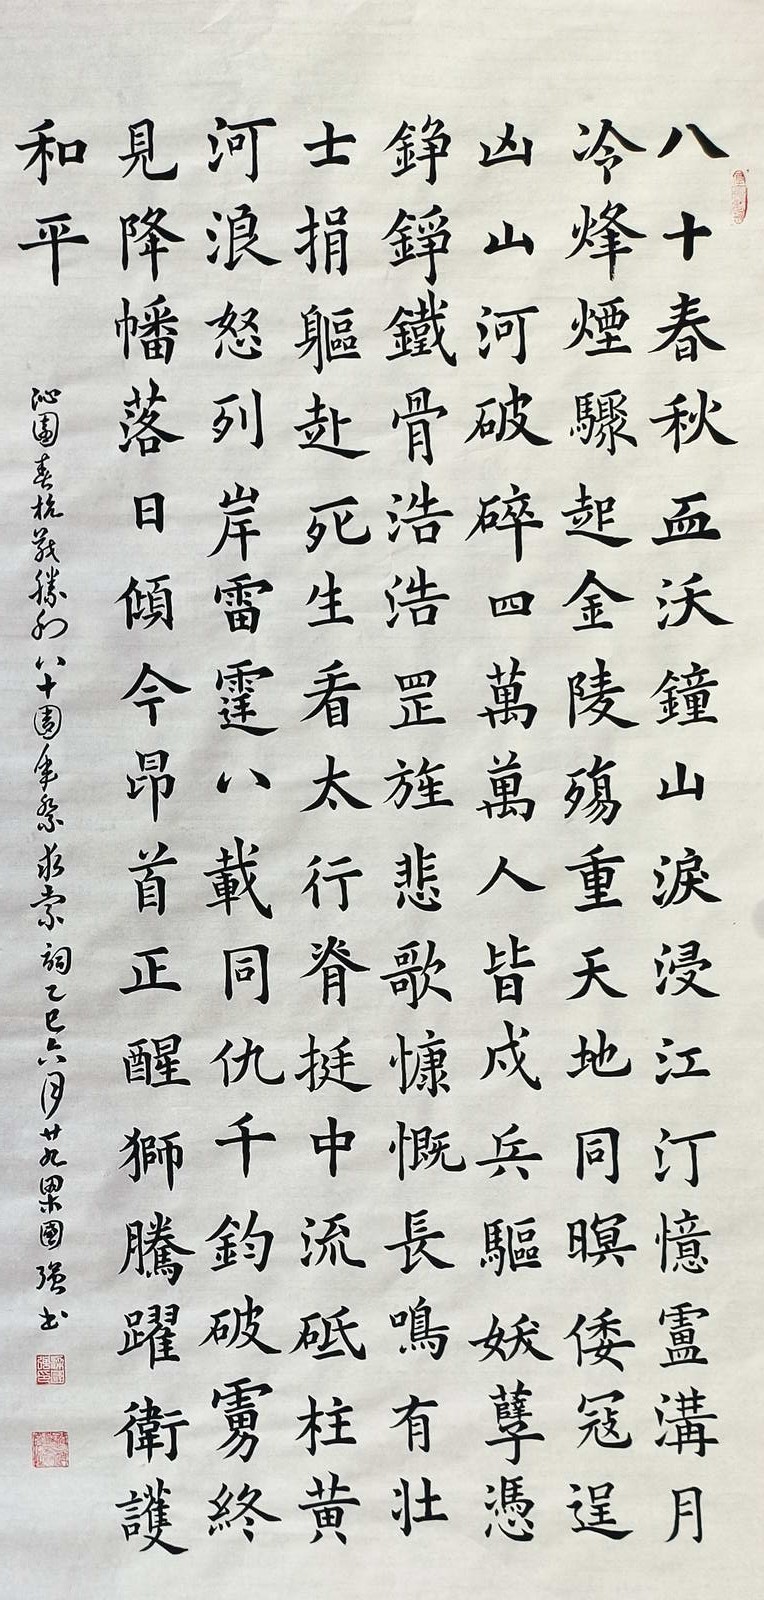 八十春秋血沃鐘山淚浸江汀憶盧溝月
冷烽煙驟起金陵殤重天地同暝倭冦逞
凶山河破碎四萬萬人皆戍兵驅妖孽憑
錚錚鐵骨浩浩罡旌悲歌慷慨長鳴有壯
士捐軀赴死生看太行脊挺中流砥柱黃
河浪怒列岸雷霆八載同仇千鈞破虜終
見降幡落日傾今昂首正醒獅騰躍衛護
和平
沁園春抗戰勝利八十周年祭求索詞乙巳六月廿九梁國強書